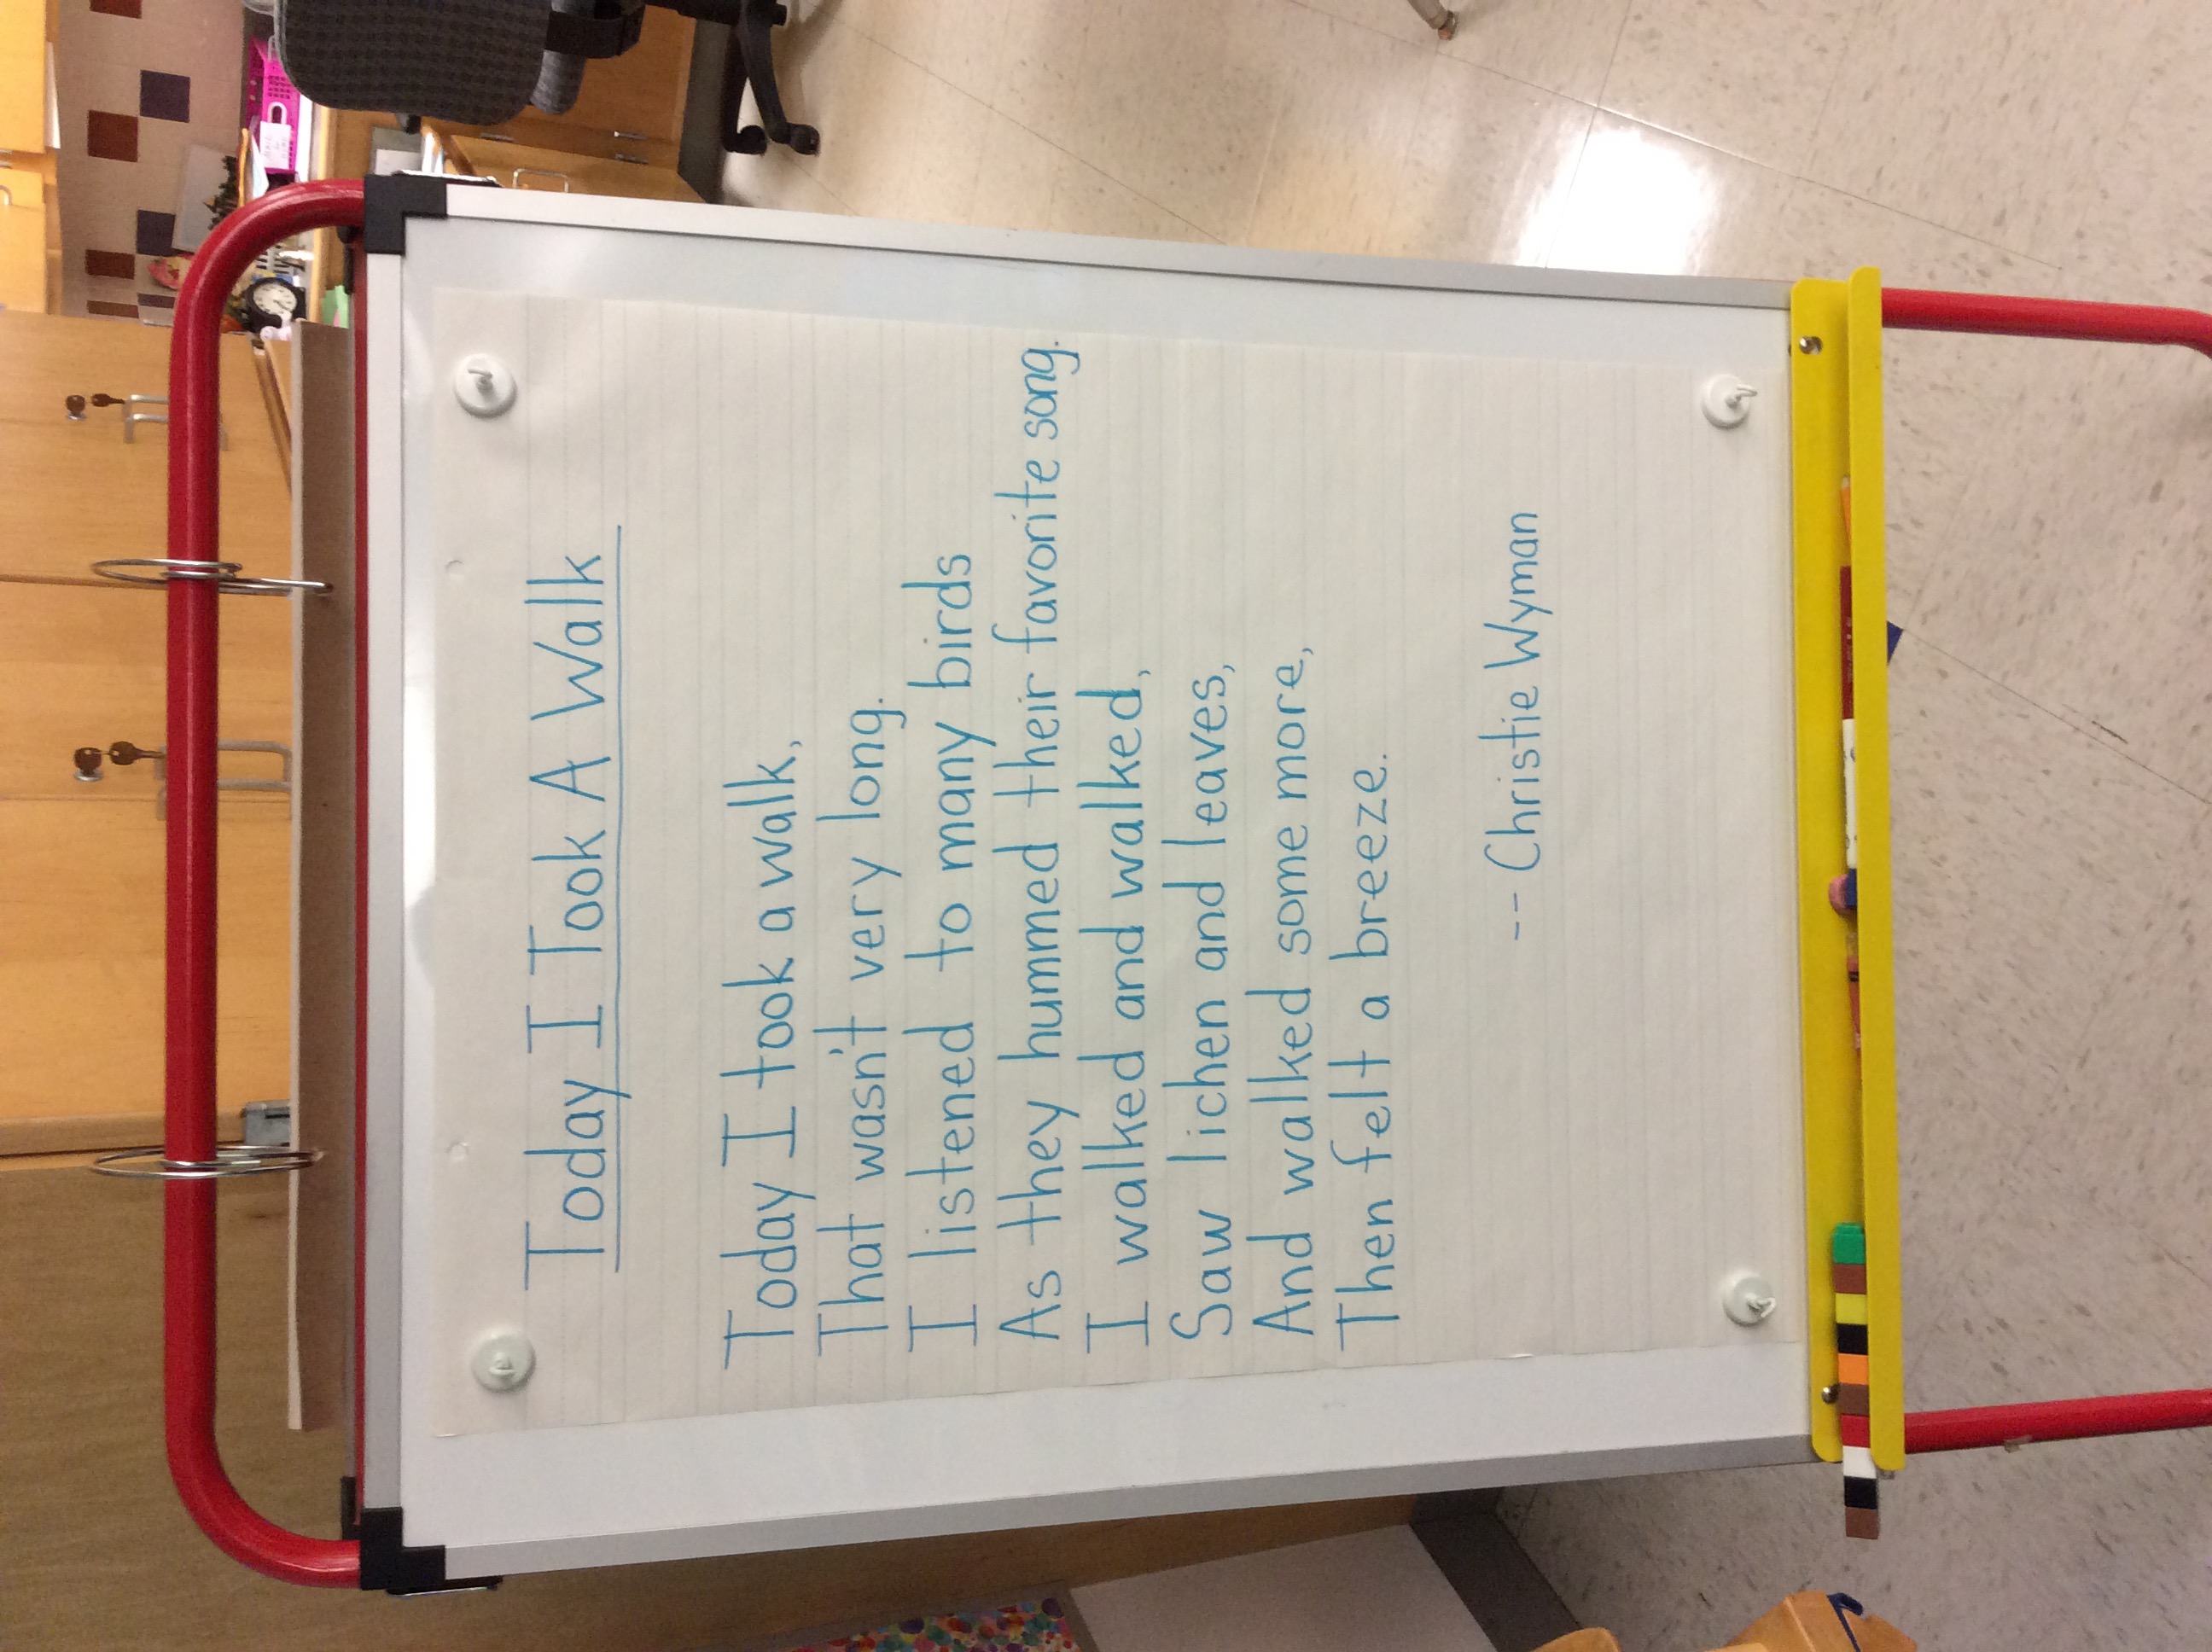 Today I Took A Walk
Today I took a walk,
That wasn't very long.
I listened to many birds
As they hummed their favorite song.
I walked and walked,
Saw lichen and leaves,
And walked some more,
Then felt a breeze.
-- Christie Wyman